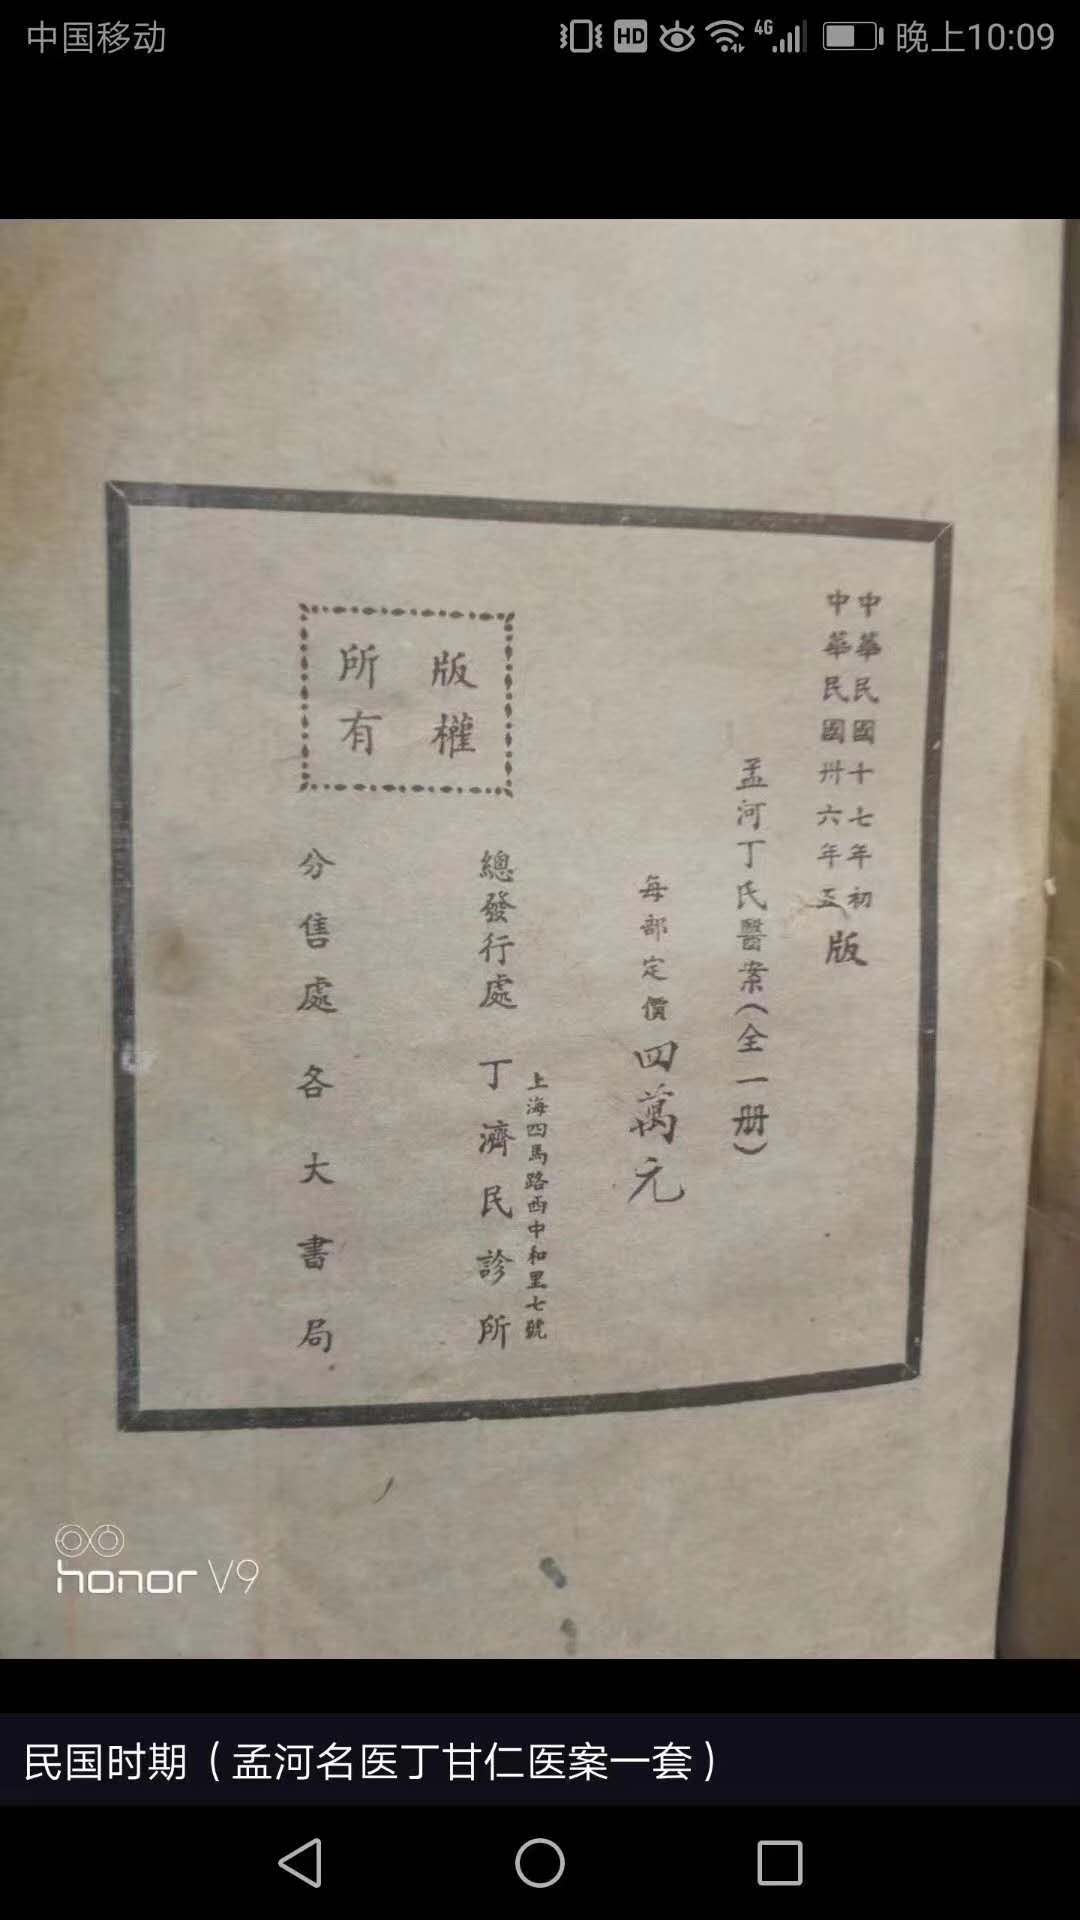 中国移动
HD
4G
晚上10:09
中華民國十七年初
中華民國卅六年五
版
孟河丁氏醫案（全一册）
每部定價四萬元
上海四馬路西中和里七號
總發行處 丁濟民診所
版權
所有
分售處各大書局
honor V9
民国时期（孟河名医丁甘仁医案一套）